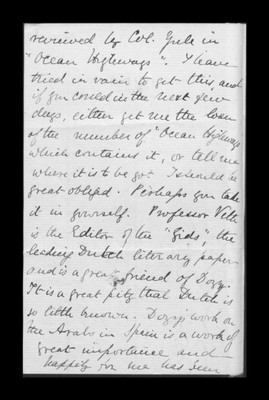 reviewed by Col. Yule in
"Ocean Highways". I have
tried in vain to get this, and
if you could in the next few
days, either get me the loan
of the number of "Ocean Highways
which contains it, or tell me
where it is to be got I should be
great obliged. Perhaps you take
it in yourself. Professor Veth
is the Editor of the "Gids", the
leading Dutch literary paper
and is a great friend of Dozy.
It is a great pity that Dutch is
so little known. Dozy's work on
the Arabs in Spain is a work of
great importance and
happily for me has been